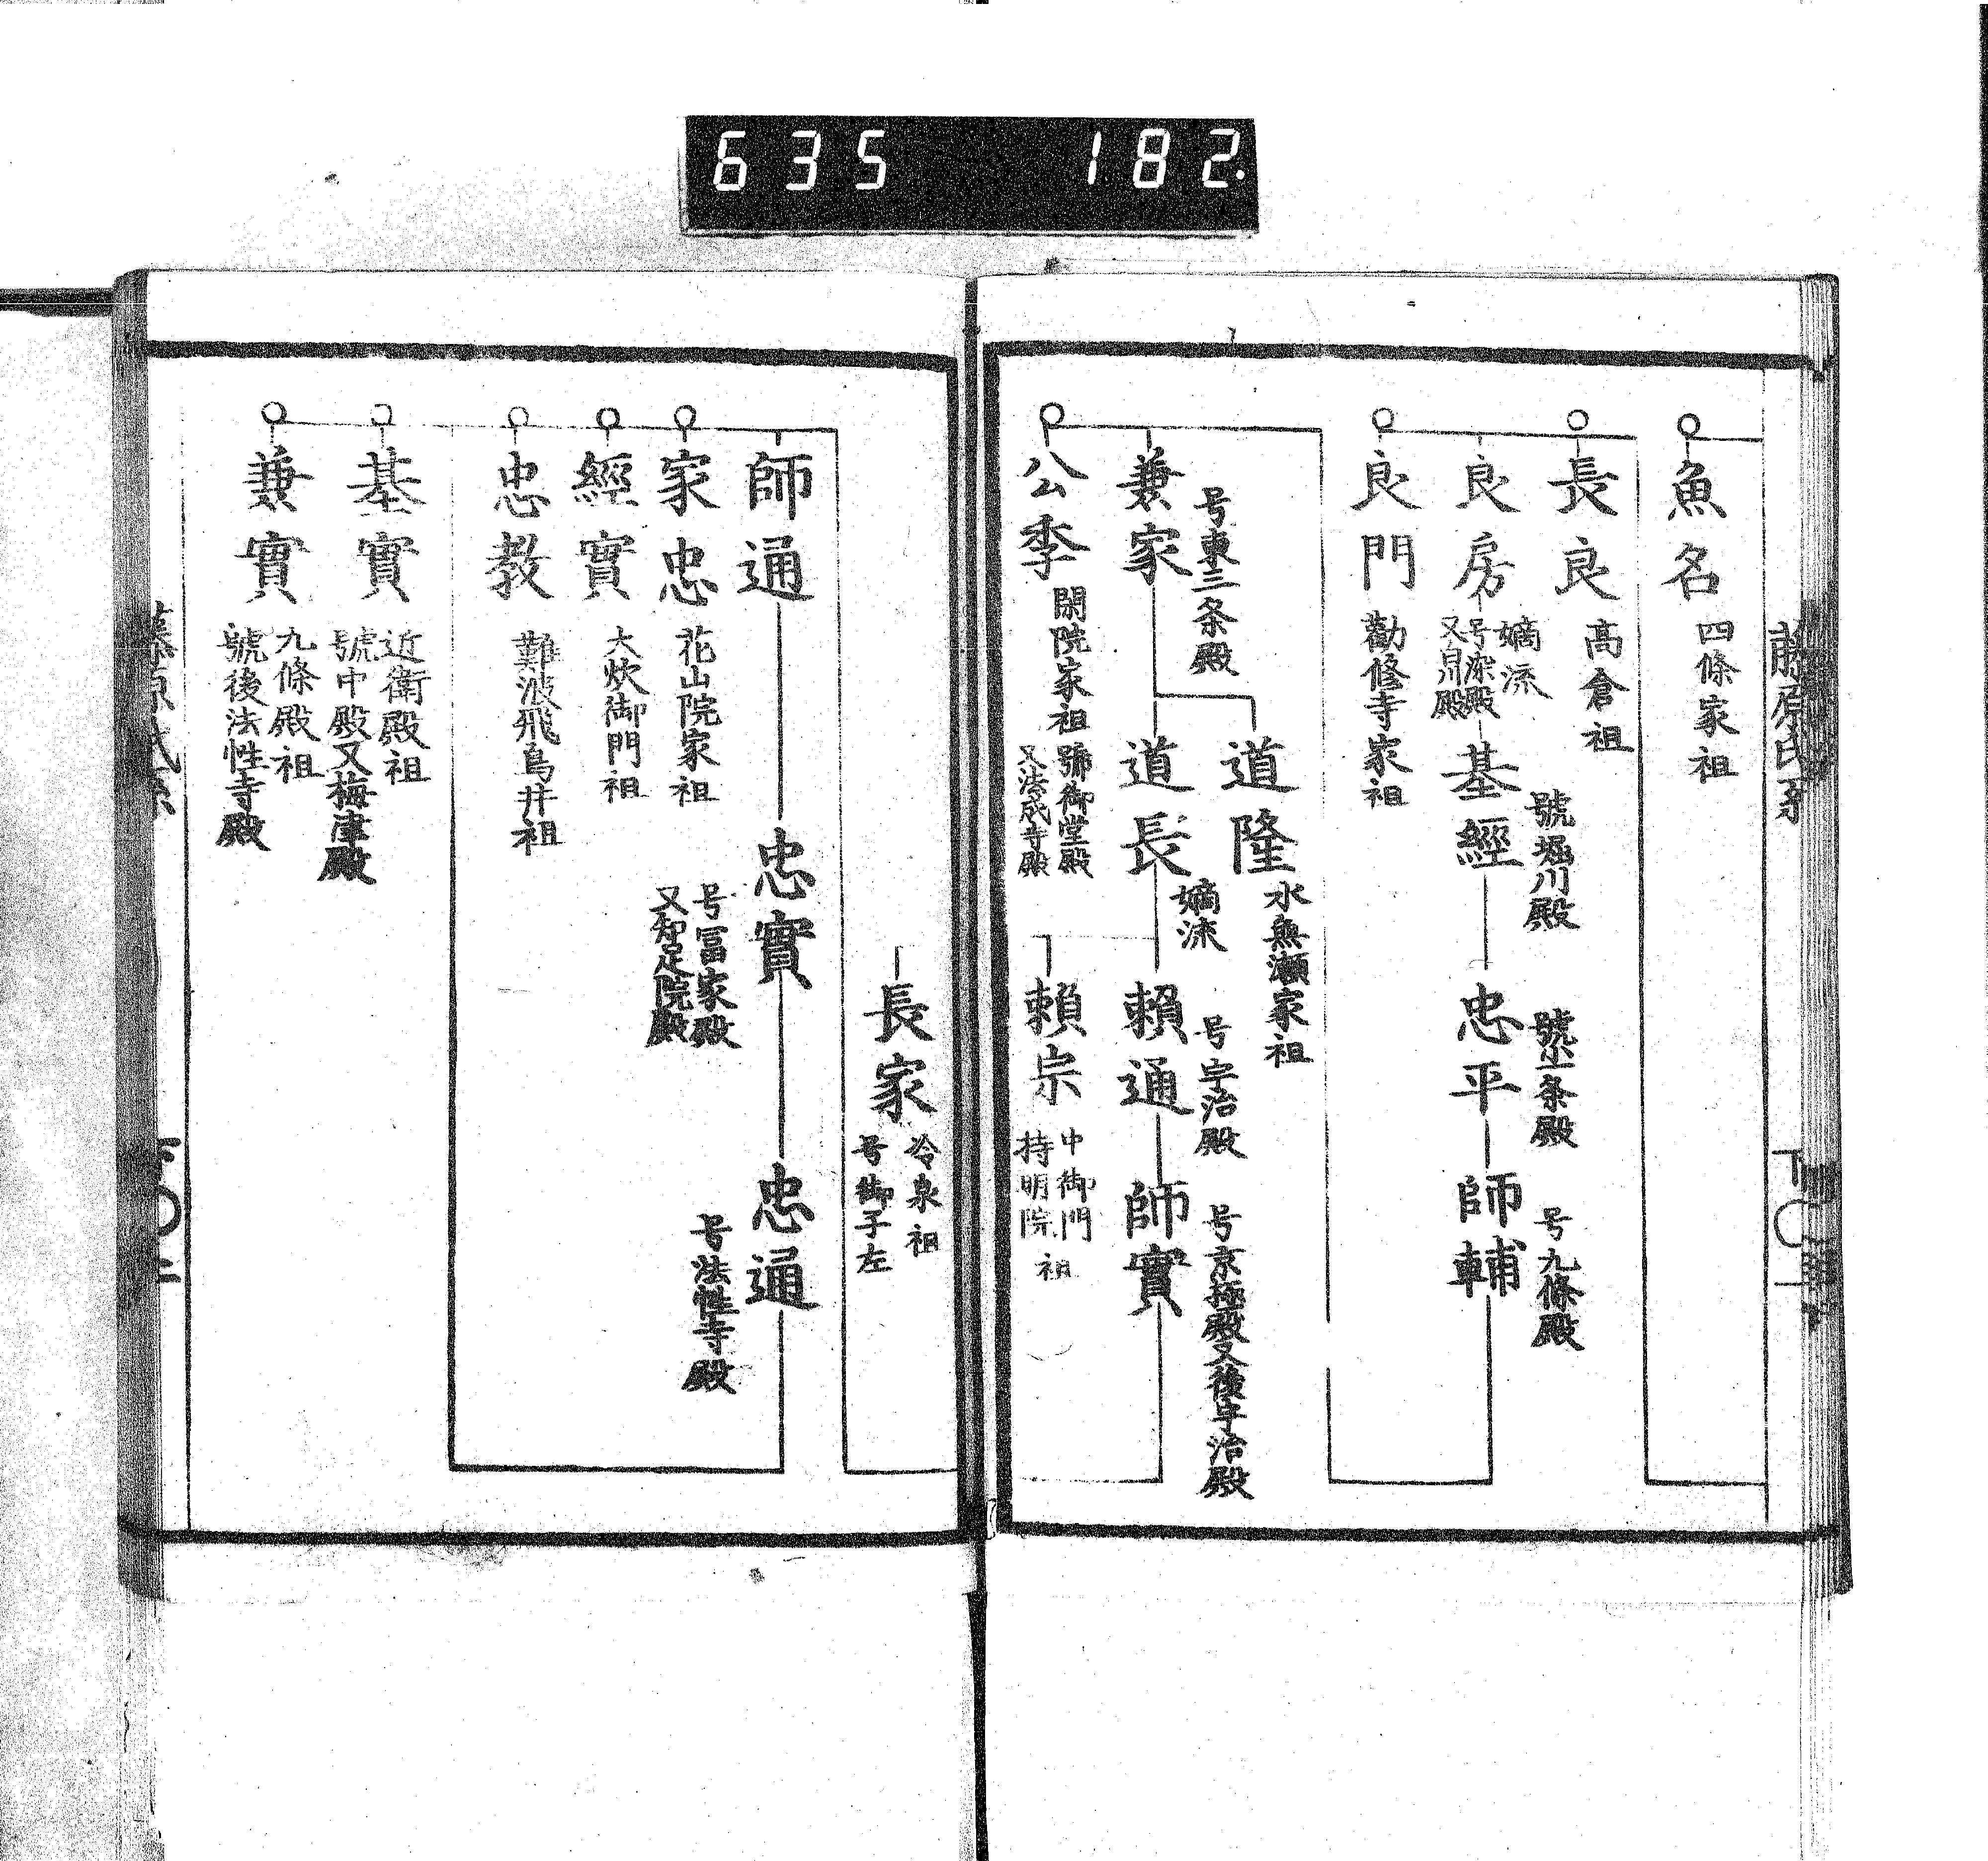 635 182.
藤原氏系
魚名
四條家祖
長良
高倉祖
良房
嫡流
号染殿
又白川殿
基經
號堀川殿
忠平
號小一条殿
師輔
号九條殿
良門
勸修寺家祖
兼家
号東三条殿
道隆
水無瀬家祖
道長
嫡流
號御堂殿
又法成寺殿
賴通
号宇治殿
師實
号京極殿又後宇治殿
賴宗
中御門
持明院
祖
公季
閑院家祖
長家
冷泉祖
号御子左
師通
忠實
号冨家殿
又知足院殿
忠通
号法性寺殿
家忠
花山院家祖
經實
大炊御門祖
忠教
難波飛鳥井祖
基實
近衛殿祖
號中殿又梅津殿
兼實
九條殿祖
號後法性寺殿